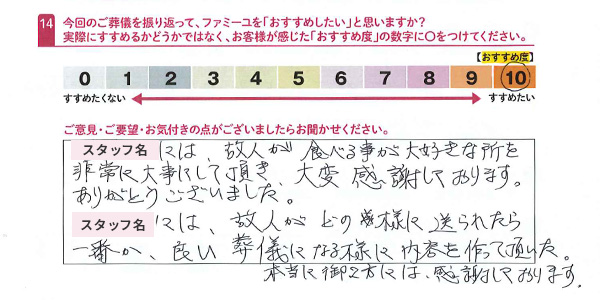 14 今回のご葬儀を振り返って、ファミーユを「おすすめしたい」と思いますか?
実際にすすめるかどうかではなく、お客様が感じた「おすすめ度」の数字に○をつけてください。
【おすすめ度】
0 1 2 3 4 5 6 7 8 9 10
すすめたくない すすめたい
ご意見・ご要望・お気付きの点がございましたらお聞かせください。
スタッフ名 には、故人が食べる事が大好きな所を
非常に大事にして頂き、大変感謝しております。
ありがとうございました。
スタッフ名 には、故人がどの様に送られたら
一番か、良い葬儀になる様に内容を作って頂いた。
本当に御2方には、感謝しております。